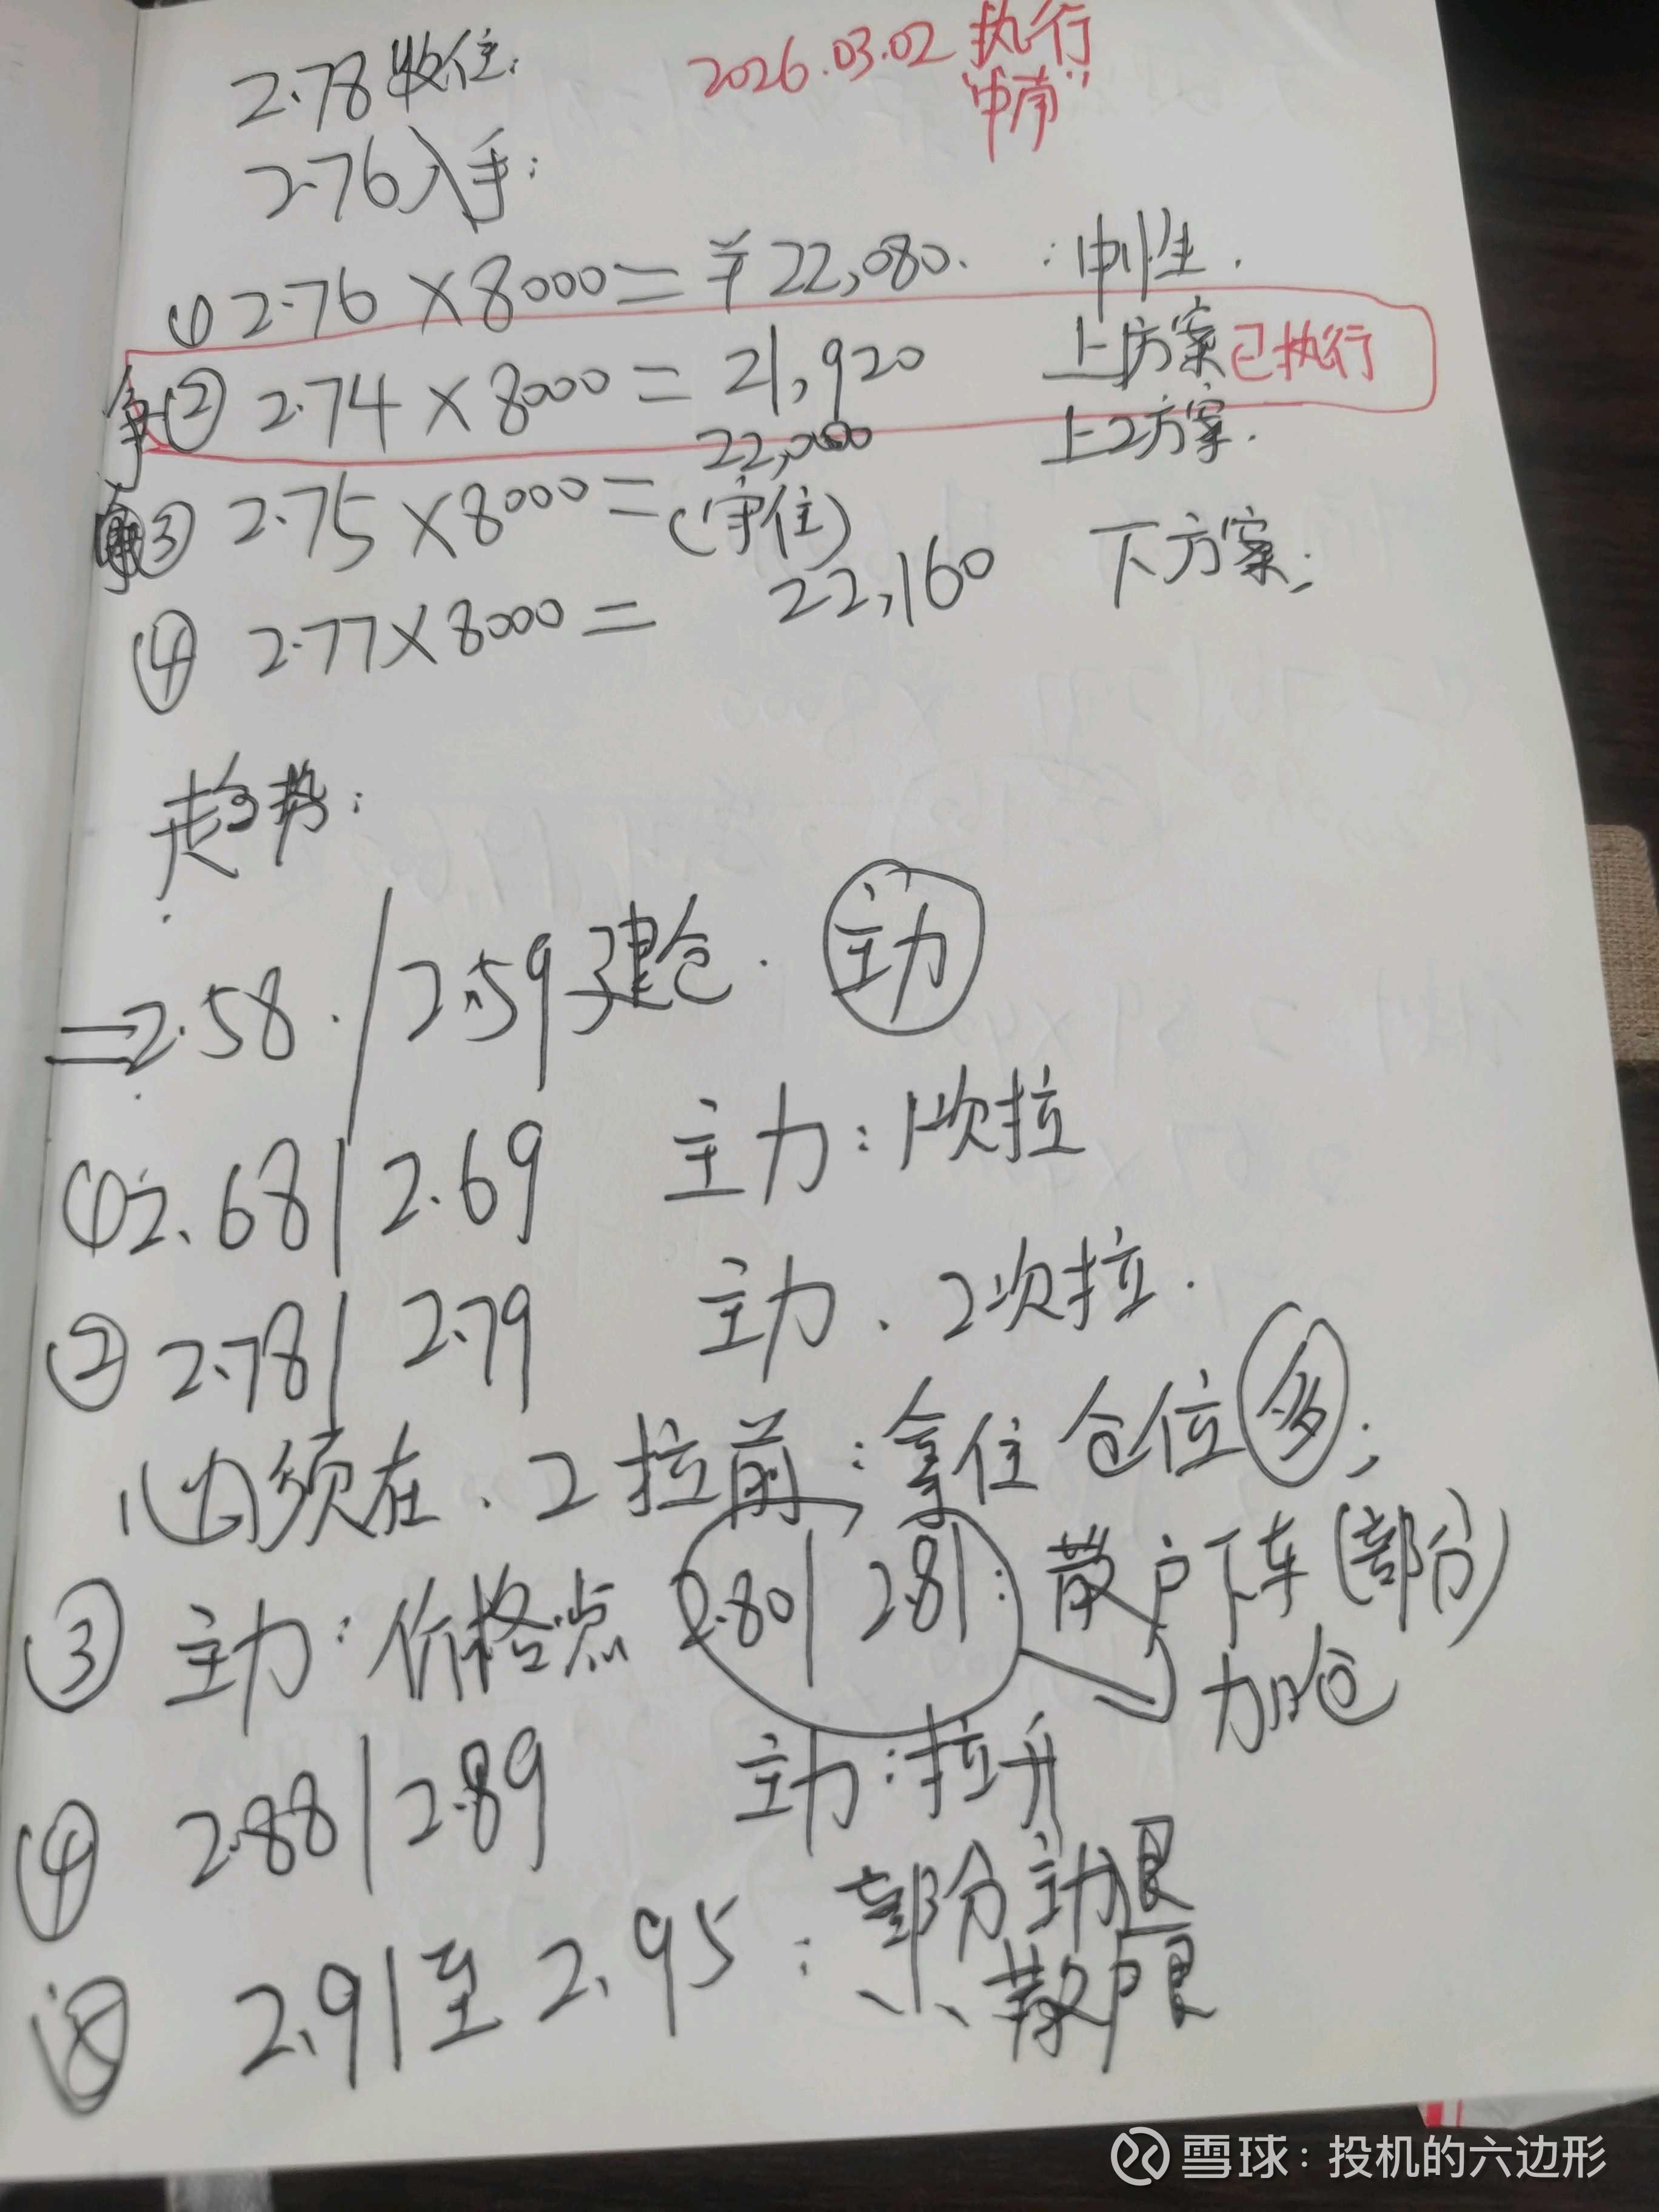 2.78收住:
2026.03.02 执行
“中南”
2.76入手:
① 2.76 × 8000 = ¥22,080. : 中性.
争② 2.74 × 8000 = 21,920 上1方案 已执行
③ 2.75 × 8000 = 22,000 上2方案.
(守住)
④ 2.77 × 8000 = 22,160 下方案;
趋势:
=2.58 . / 2.59 建仓. 主力
① 2.68 | 2.69 主力: 1次拉
② 2.78 | 2.79 主力. 2次拉.
必须在. 2拉前: 拿住仓位多;
③ 主力: 价格点 2.80 | 2.81: 散户下车(部分)
加仓
④ 2.88 | 2.89 主力: 拉升
2.91至2.95: 部分主力退
散户退
雪球:投机的六边形